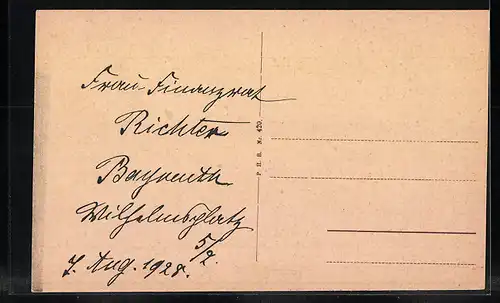 Frau Finanzrat
Richter
Bayreuth
Wilhelmsplatz
5/2.
7. Aug. 1928.
P. H. B. Nr. 420.